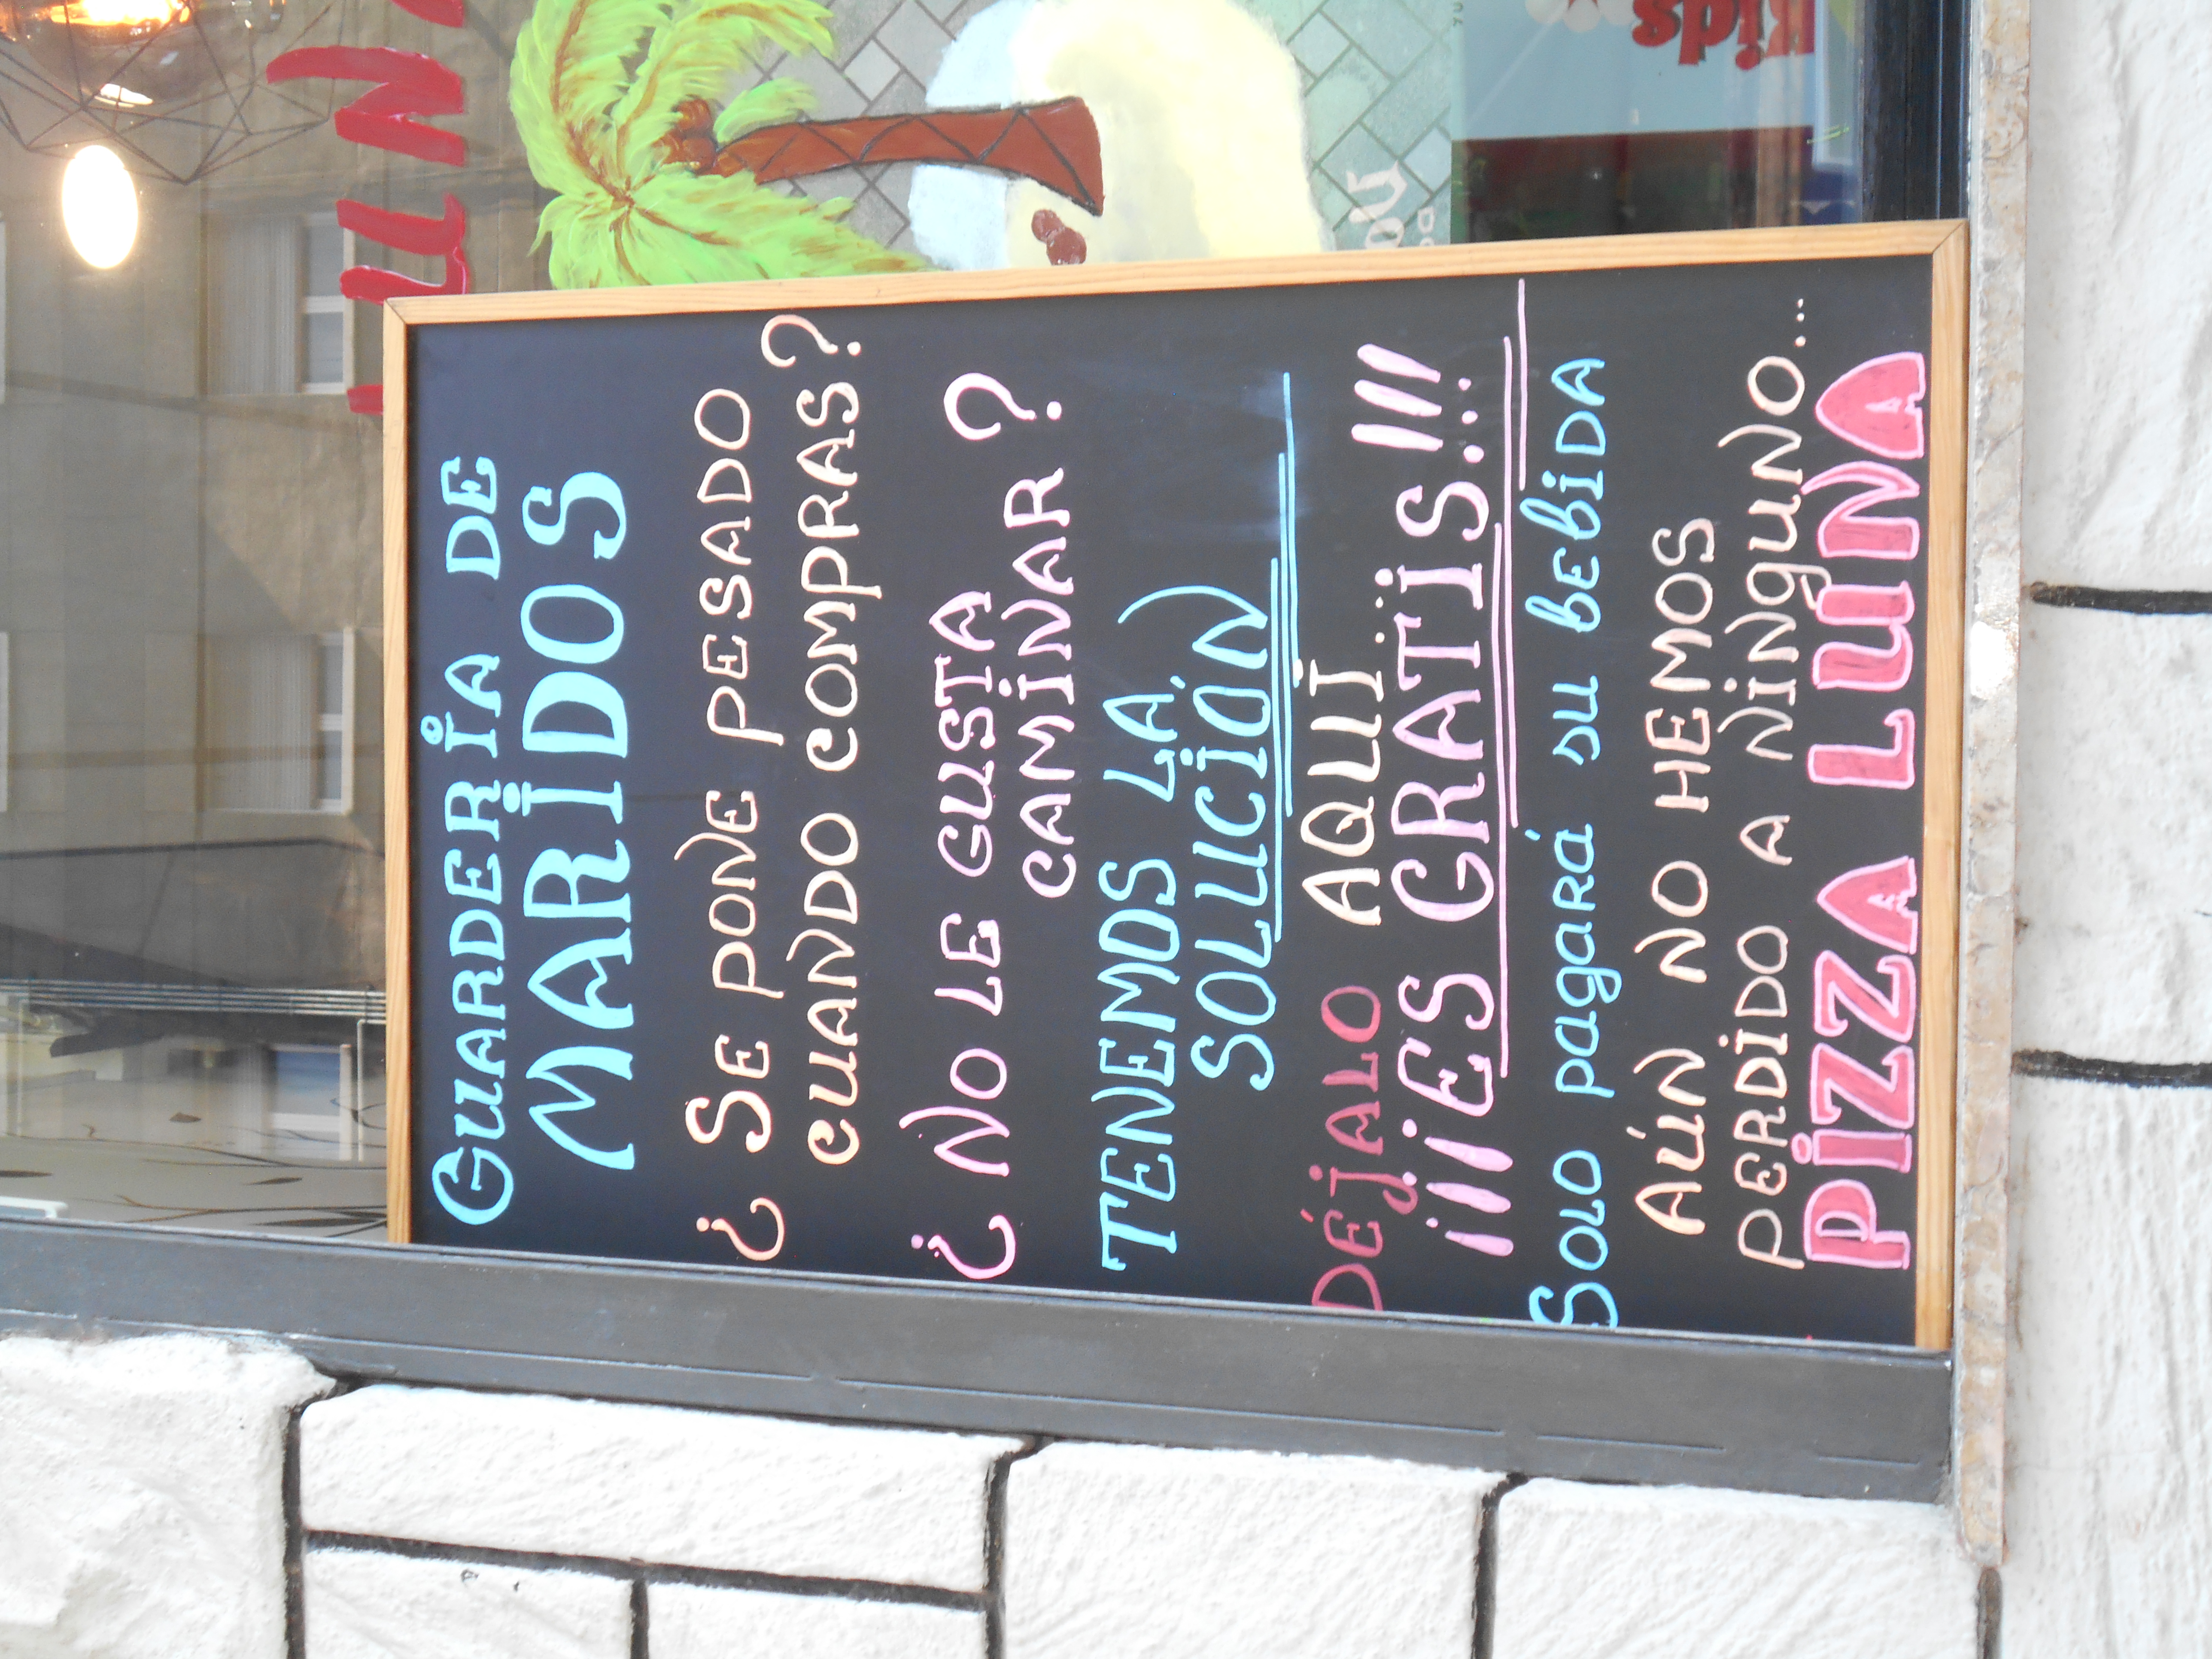 GUARDERÍA DE
MARIDOS
¿SE PONE PESADO
CUANDO COMPRAS?
¿NO LE GUSTA
CAMINAR?
TENEMOS LA
SOLUCIÓN
DÉJALO AQUÍ...
¡¡¡ES GRATIS!!!...
SOLO pagará su BEBIDA
AÚN NO HEMOS
PERDIDO A NINGUNO...
PIZZA LUNA
LUNA
kids